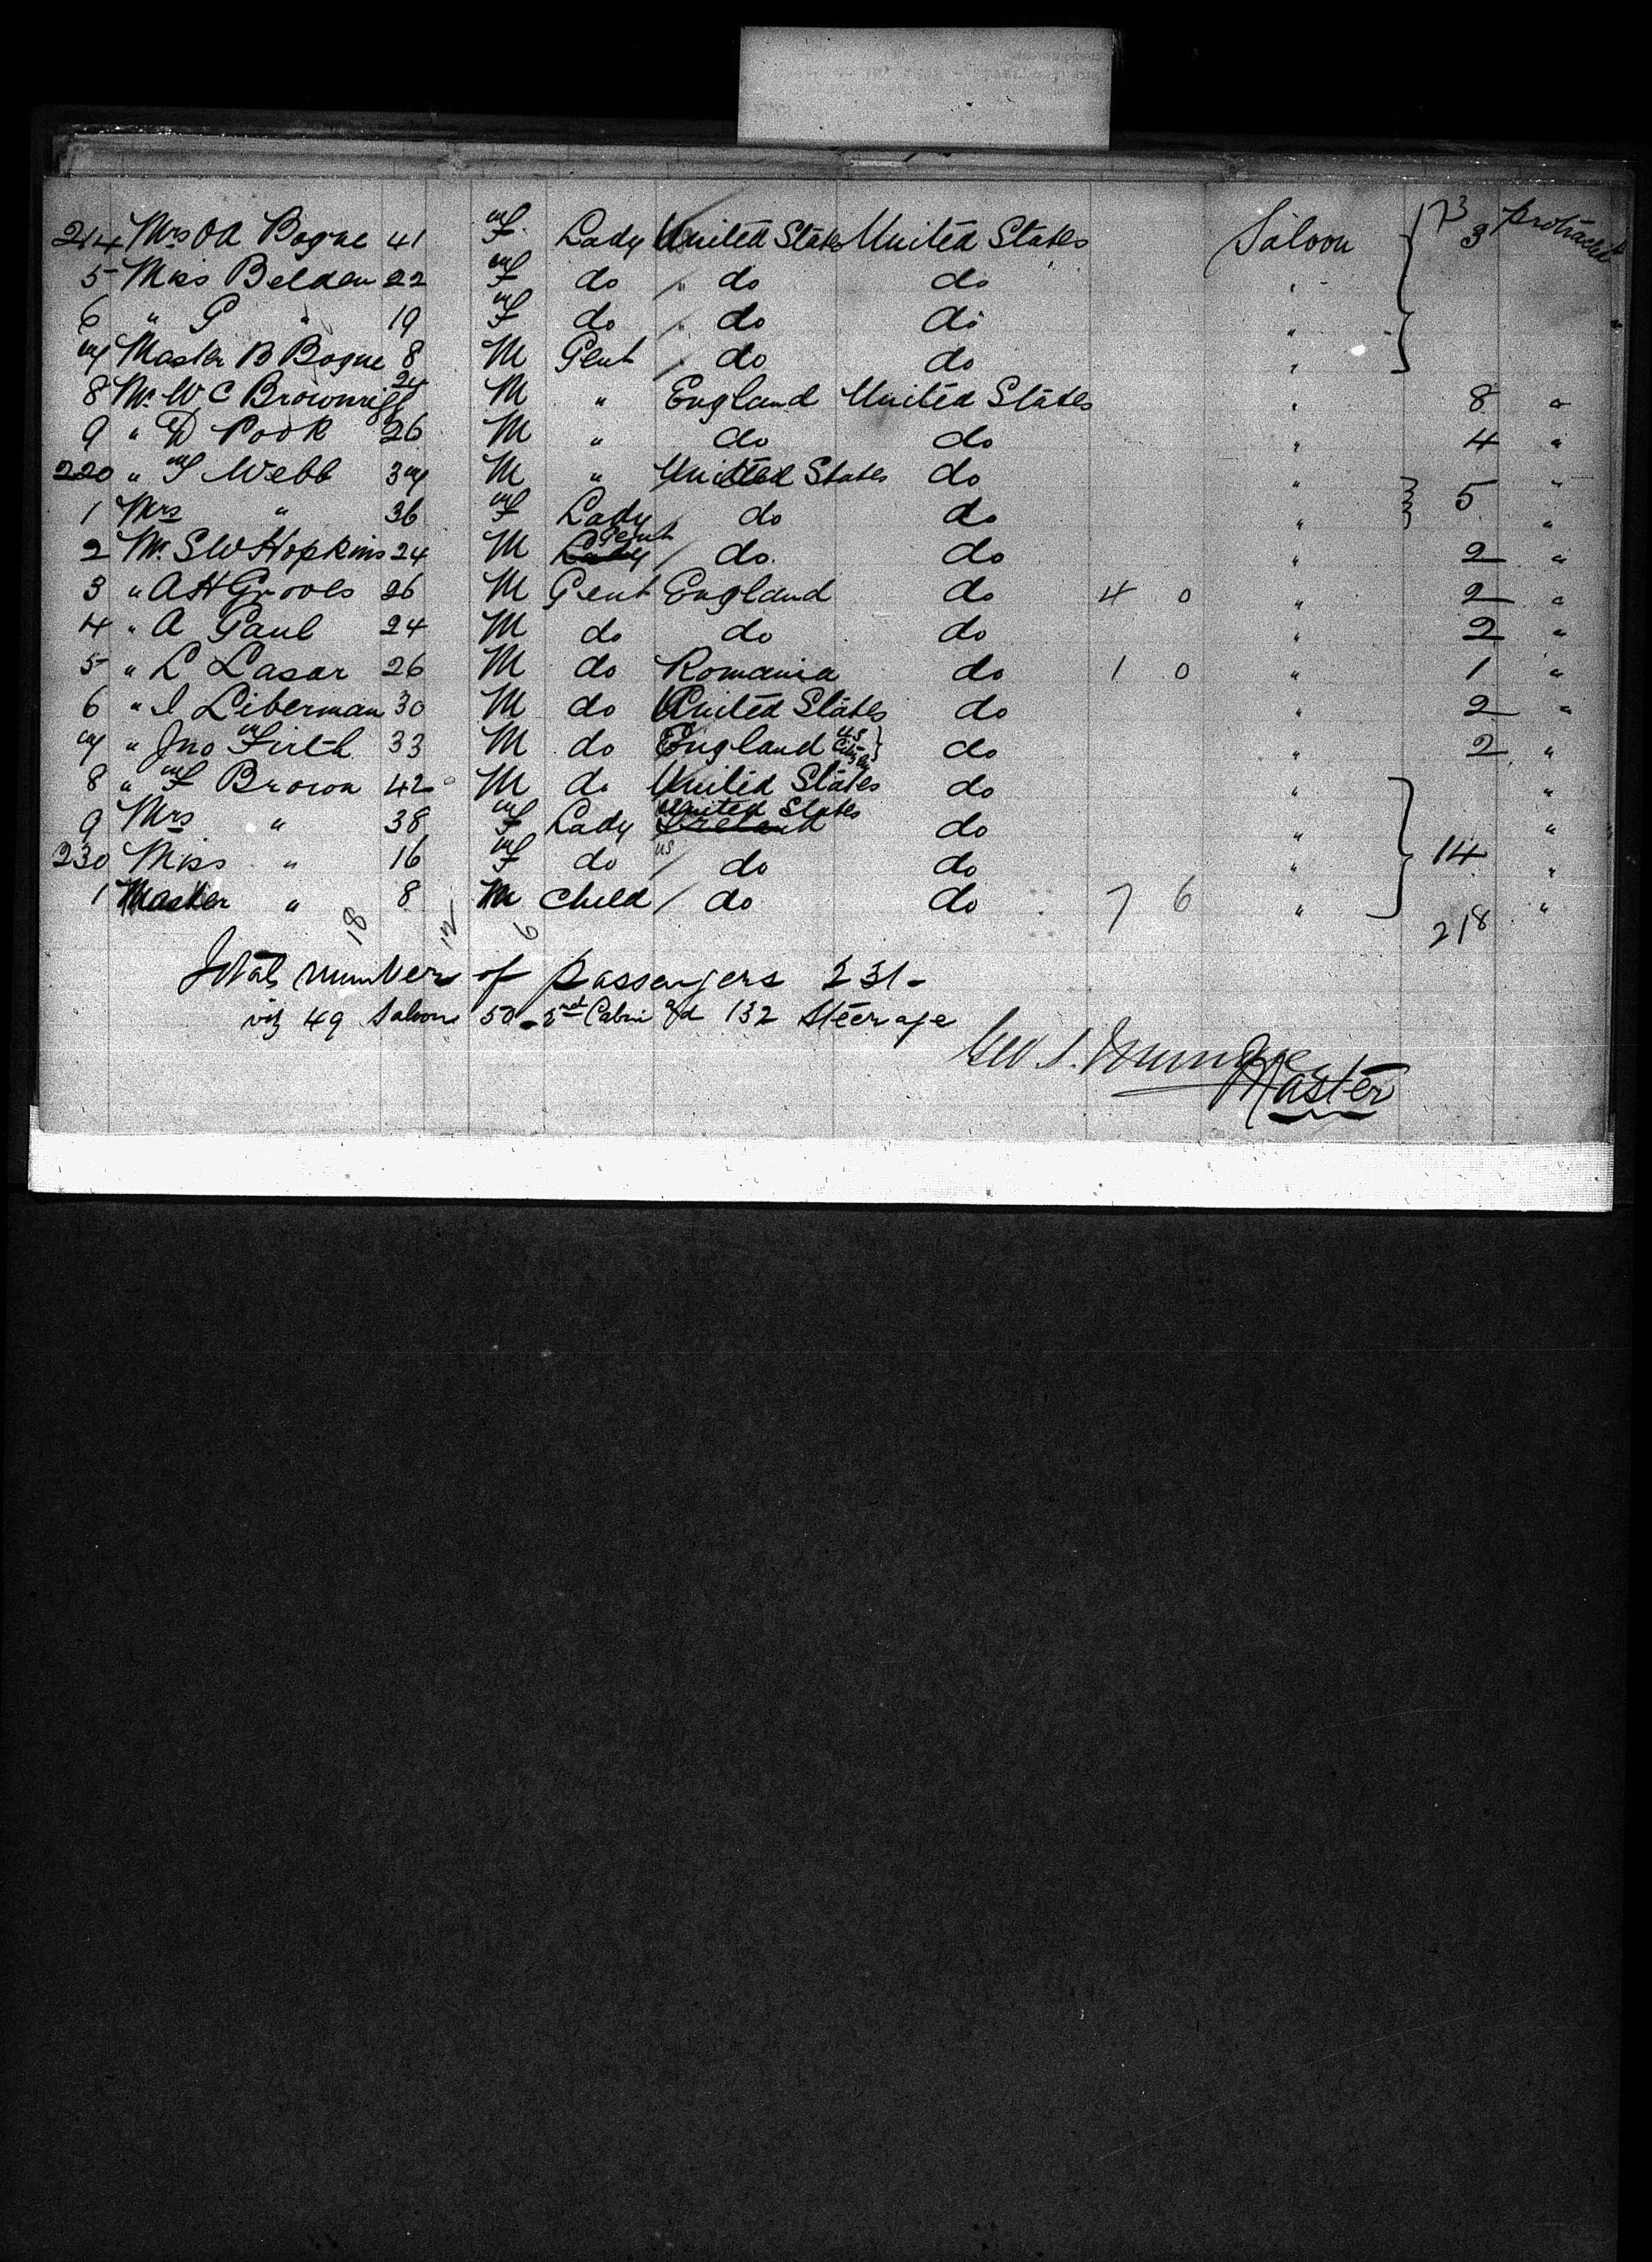 214 Mrs O A Bogue 41 F Lady United States United States Saloon 3 protracted
5 Miss Belden 22 F do " do do "
6 " G " 19 F do " do do "
7 Master B Bogue 8 M Gent " do do "
8 Mr W C Brownrigg 24 M " England United States " 8 "
9 " D Pook 26 M " do do " 4 "
220 " F Webb 37 M " United States do " "
1 Mrs " 36 F Lady do do " 5 "
2 Mr S W Hopkins 24 M Lady Gent do do " 2 "
3 " A H Grooves 26 M Gent England do 4 0 " 2 "
4 " A Paul 24 M do do do " 2 "
5 " L Lasar 26 M do Romania do 1 0 " 1 "
6 " I Liberman 30 M do United States do " 2 "
7 " Jno Firth 33 M do England US do " 2 "
8 " F Brown 42 M do United States do " "
9 Mrs " 38 F Lady Ireland United States do " "
230 Miss " 16 F do US do do " 14 "
1 Master " 8 M Child do do 7 6 " "
18 12 6 218
Total number of passengers 231-
viz 49 Saloon 50 - 2nd Cabin & 132 Steerage
Geo S.
Master